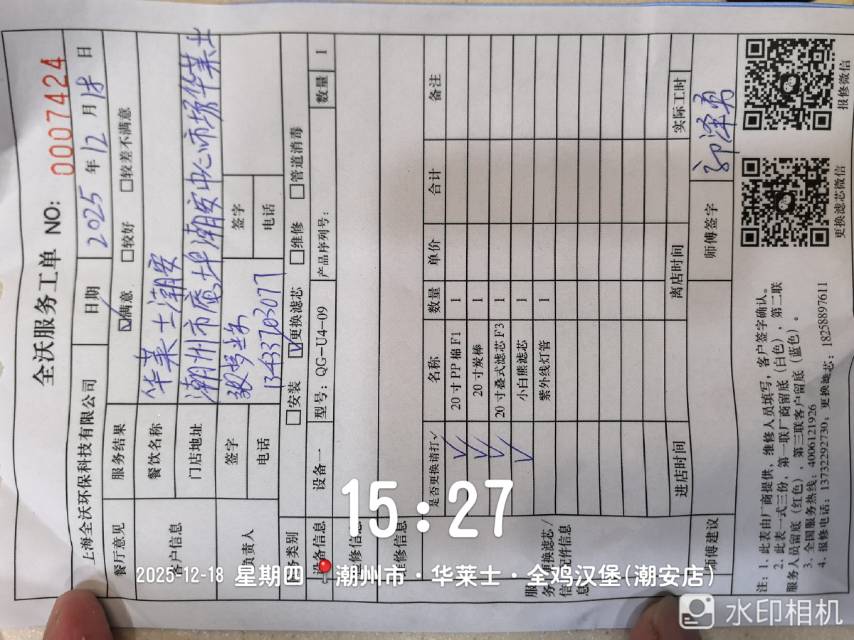 全沃服务工单 NO: 0007424
上海全沃环保科技有限公司 日期 2025 年 12 月 18 日
餐厅意见 服务结果 ☑满意 □较好 □较差不满意
客户信息 餐饮名称 华莱士潮安
门店地址 潮州市 潮安中心市场华莱士
负责人 签字 签字
电话 13433703077 电话
服务类别 □安装 ☑更换滤芯 □维修 □管道消毒
设备信息 设备一 型号: QG-U4-09 产品序列号: 数量 1
维修信息
是否更换请打✓ 名称 数量 单价 合计 备注
✓ 20 寸 PP 棉 F1 1
✓ 20 寸炭棒 1
✓ 20 寸叠式滤芯 F3 1
✓ 小白熊滤芯 1
紫外线灯管 1
服务更换滤芯/
信息配件信息
进店时间 离店时间 实际工时
师傅建议 师傅签字
注: 1、此表由厂商提供,维修人员填写,客户签字确认。
2、此表一式三份,第一联厂商留底(白色),第二联
服务人员留底(红色),第三联客户留底(蓝色)。
3、全国服务热线: 4006121926
4、报修电话: 13732292730; 更换滤芯: 18258897611
更换滤芯微信
报修微信
15:27
2025-12-18 星期四 潮州市·华莱士·全鸡汉堡(潮安店)
水印相机